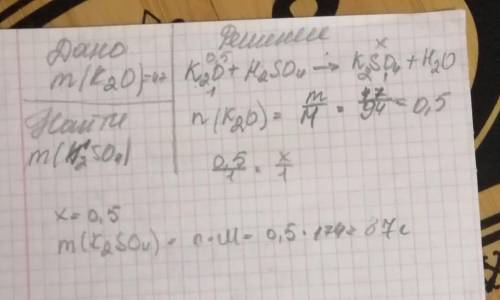 Дано
m(K₂O)=47
Найти
m(K₂SO₄)
Решение
0,5 x
K₂O + H₂SO₄ → K₂SO₄ + H₂O
1 1
n(K₂O) = m/M = 47/94 = 0,5
0,5/1 = x/1
x = 0,5
m(K₂SO₄) = n·M = 0,5·174 = 87г